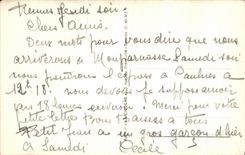 Rennes Jeudi soir
Chers Amis.
Deux mots pour vous dire que nous
arriverons à Montparnasse Samedi soir
nous prendrons l'express à
12h18. nous devons je suppose avoir
18 heures environ. Merci pour votre
petite lettre Bons Baisers à tous
Petit Jean a un gros garçon d'hier
à Samedi Cécile